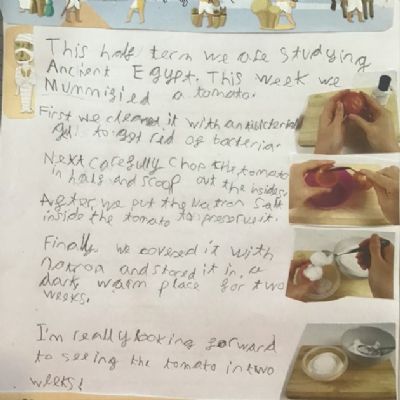 This half term we are studying
Ancient Egypt. This week we
Mummified a tomato.
First we cleaned it with antibacterial
gel to get rid of bacteria.
Next carefully chop the tomato
in half and scoop out the insides.
After, we put the Natron Salt
inside the tomato to preserve it.
Finally we covered it with
natron and stored it in a
dark warm place for two
weeks.
I'm really looking forward
to seeing the tomato in two
weeks!